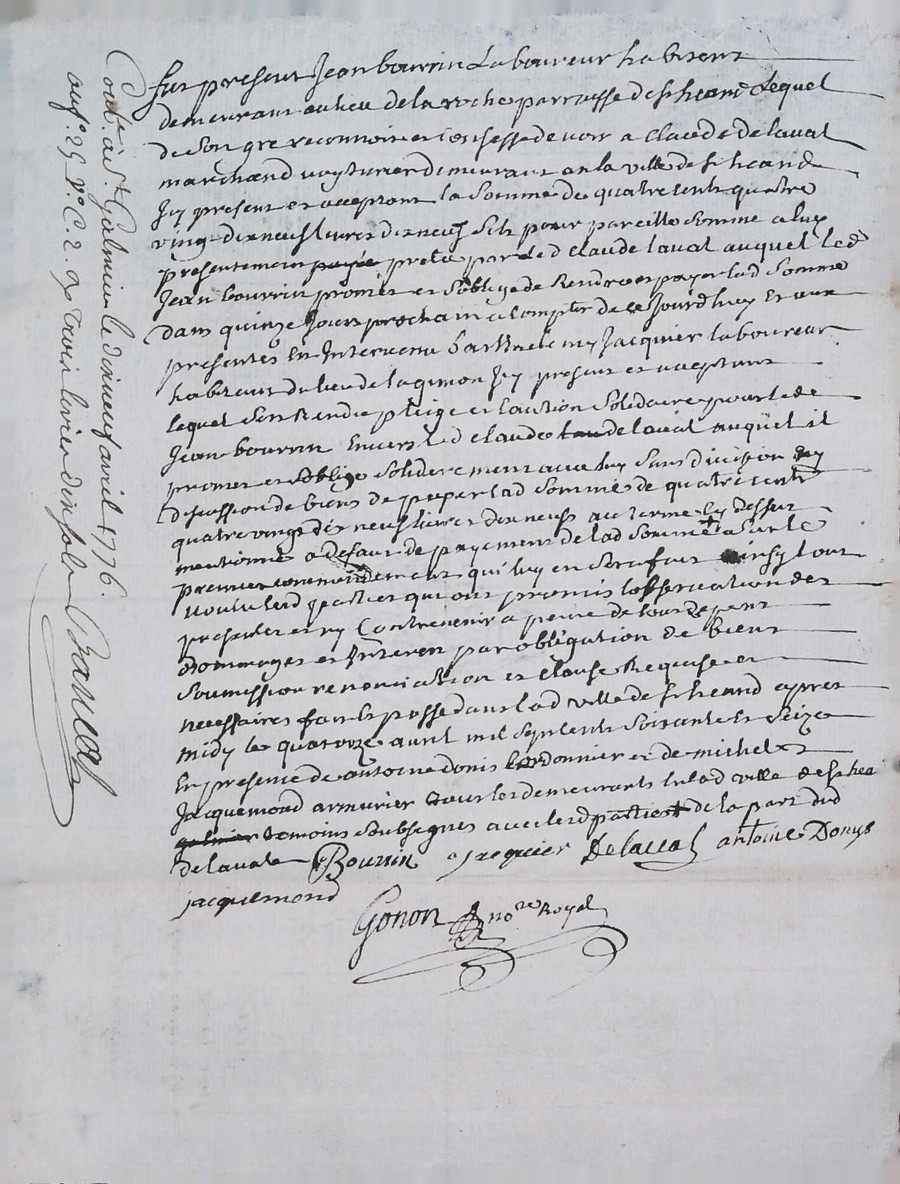 Fut present Jean bourrin Laboureur habitent
demeurant au lieu de la roche parroisse de st heand Lequel
de Son gre reconnoit et Confesse devoir a Claude de laval
marchand voyturier demeurant en la ville de st heand
Icy present et acceptant la Somme de quatre cent quatre
vingt dix neuf livres dix neuf Sols pour pareille Somme a luy
presentement payée preté par led Claude laval auquel led
Jean bourrin promet et S'oblige de Rendre et payer lad Somme
dans quinze Jours prochain a Compter de ce Jourd'huy Et aux
presentes Est Intervenu barthelemy Jacquier laboureur
habitant du lieu de la gimon Icy present et acceptant
lequel S'est Rendu pleige et Caution Solidaire pour led
Jean bourrin Envers led Claude de laval auquel il
promet et S'oblige Soliderement avec luy Sans division ny
discussion de biens de payer lad Somme de quatre cent
quatre vingt dix neuf livres dix neuf au terme Cy dessus
mentionné a defaut de payement de lad Somme a Sur le
premier commandement qui luy en Sera fait ainsy lont
voulu lesd parties qui ont promis lobservation des
presentes et ny Contrevenir a peine de tous depens
Dommages et Interets par obligation de biens
Soumission renonciation et clause Requise et
necessaires fait Et passé dans lad ville de St heand apres
midy le quatorze avril mil Sept cents Soixante Et Seize
En presence de antoine donis Cordonnier et de michel
Jacquemond armurier tous les demeurants En lad ville de st hea
galmier temoins Soubsignes avec lesd parties de la part dud
delaval Bourrin Jacquier Delaval antoine Donys
jacquemond
Gonon nore Royal
Contlé à St Galmier le dixneuf avril 1776.
au fo. 25 Vo. C. 2. Rx trois livres dix sols